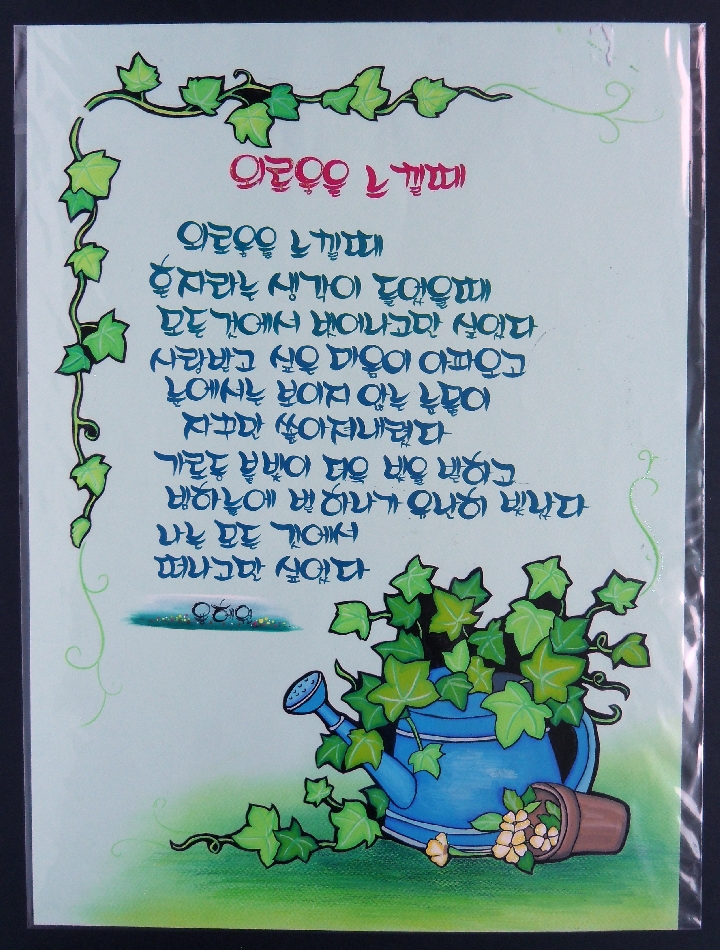 외로움을 느낄때
외로움을 느낄때
혼자라는 생각이 들었을때
모든것에서 벗어나고만 싶었다
사랑받고 싶은 마음이 아파오고
눈에서는 보이지 않는 눈물이
자꾸만 쏟아져내렸다
가로등 불빛이 더욱 빛을 발하고
밤하늘에 별 하나가 유난히 빛난다
나는 모든 것에서
떠나고만 싶었다